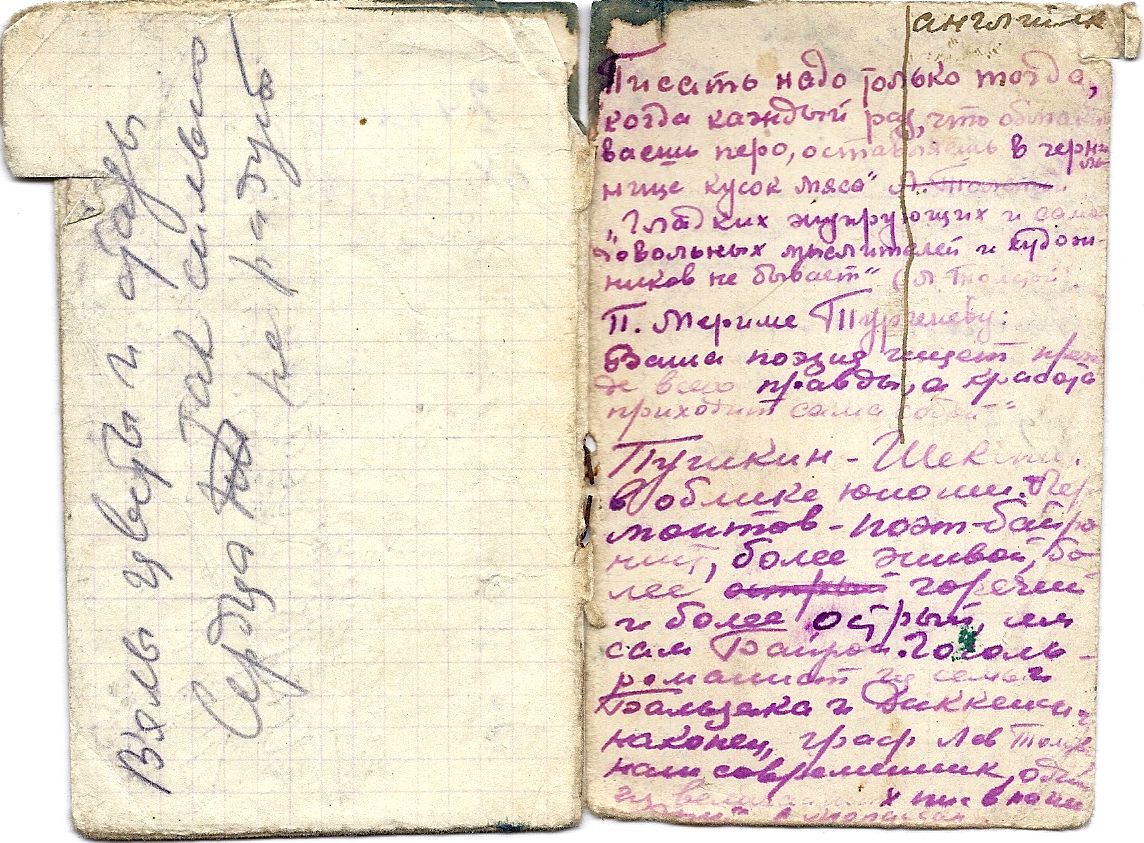 Вялы цветы и отрады
Так сильно
Сердца не радуют
англичанк
Писать надо только тогда,
когда каждый раз, что обмаки
ваешь перо, оставляешь в черни
льнице кусок мяса" Л. Толстой.
„Гладких жуирующих и само
довольных мыслителей и худож-
ников не бывает" (Л. Толстой)
П. Мериме Тургеневу:
Ваша поэзия ищет преж
де всего правды, а красота
приходит сама собой"
Пушкин - Шекспир.
в облике юноши. Лер
монтов - поэт-байро
нист, более живой, бо
лее острый горячий
и более острый, чем
сам Байрон. Гоголь -
романист из семьи
Бальзака и Диккенса,
наконец, граф Лев Толстой
наш современник, один
из х писа наши